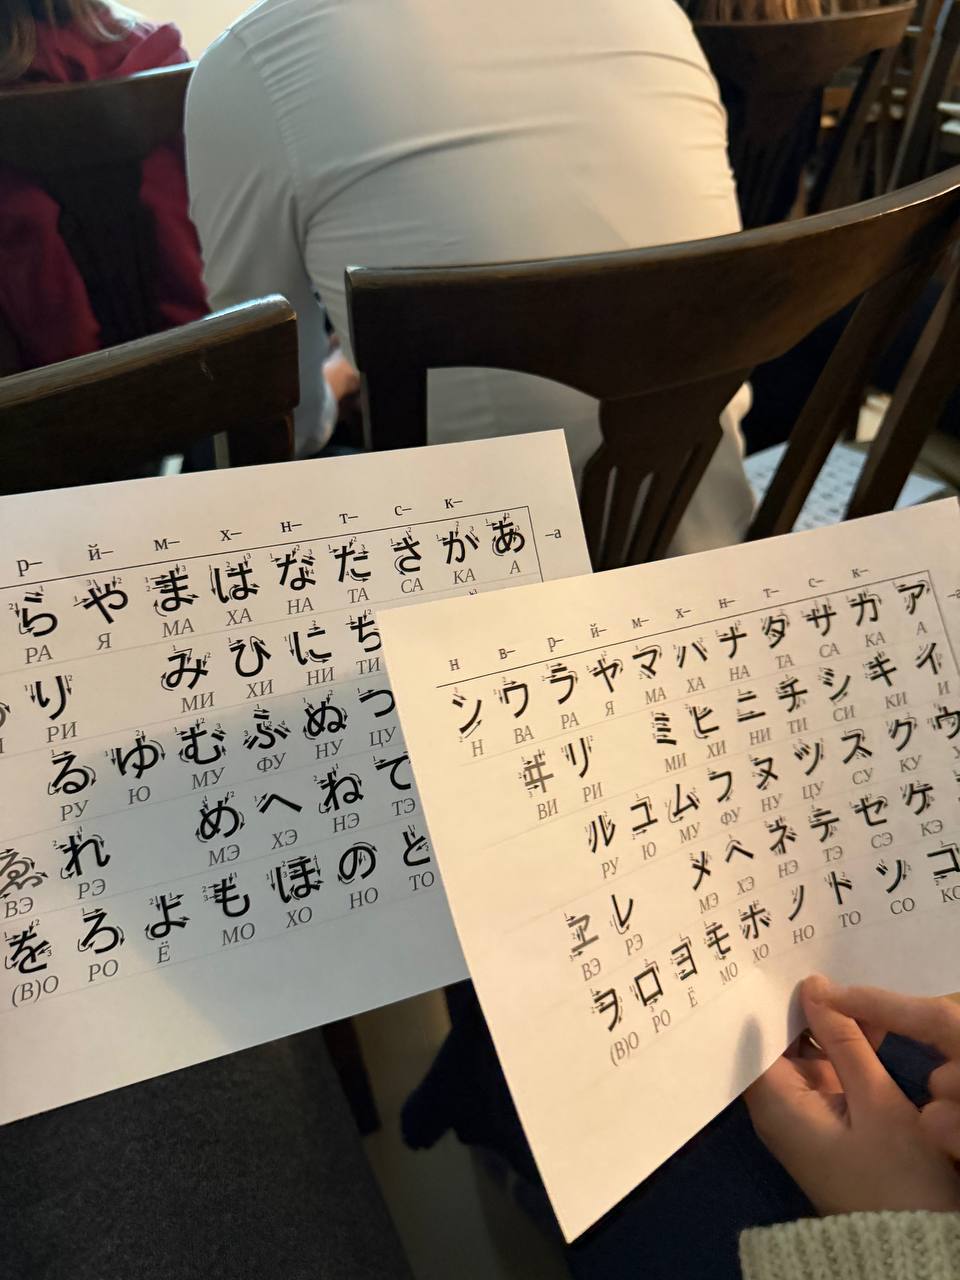 р– й– м– х– н– т– с– к–
ら や ま は な た さ か あ –а
РА Я МА ХА НА ТА СА КА А
り み ひ に ち
РИ МИ ХИ НИ ТИ
る ゆ む ふ ぬ つ
РУ Ю МУ ФУ НУ ЦУ
ゑ れ め へ ね て
ВЭ РЭ МЭ ХЭ НЭ ТЭ
を ろ よ も ほ の と
(В)О РО Ё МО ХО НО ТО
н в– р– й– м– х– н– т– с– к–
ン ワ ラ ヤ マ ハ ナ タ サ カ ア –а
Н ВА РА Я МА ХА НА ТА СА КА А
ヰ リ ミ ヒ ニ チ シ キ イ
ВИ РИ МИ ХИ НИ ТИ СИ КИ И
ル ユ ム フ ヌ ツ ス ク ウ
РУ Ю МУ ФУ НУ ЦУ СУ КУ
ヱ レ メ ヘ ネ テ セ ケ
ВЭ РЭ МЭ ХЭ НЭ ТЭ СЭ КЭ
ヲ ロ ヨ モ ホ ノ ト ソ コ
(В)О РО Ё МО ХО НО ТО СО КО